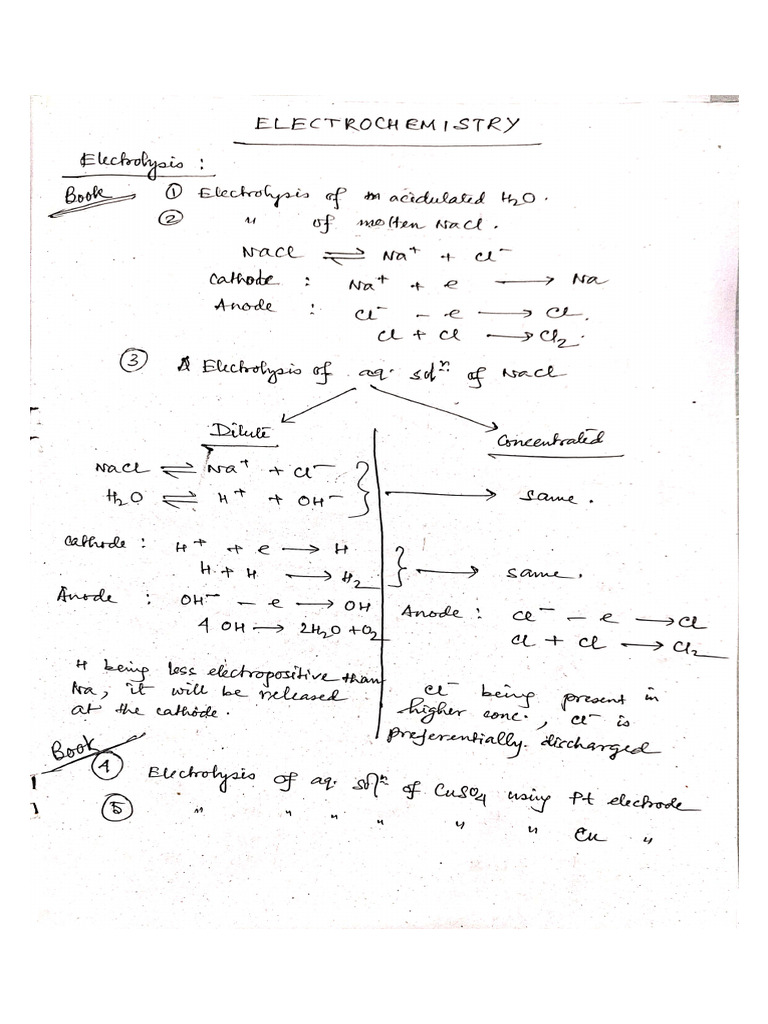 ELECTROCHEMISTRY
Electrolysis :
Book ① Electrolysis of acidulated H₂O.
② " of molten NaCl.
NaCl ⇌ Na⁺ + Cl⁻
Cathode : Na⁺ + e ⟶ Na
Anode : Cl⁻ - e ⟶ Cl.
Cl + Cl ⟶ Cl₂.
③ Electrolysis of aq. solⁿ of NaCl
Dilute
NaCl ⇌ Na⁺ + Cl⁻
H₂O ⇌ H⁺ + OH⁻
Cathode : H⁺ + e ⟶ H
H + H ⟶ H₂
Anode : OH⁻ - e ⟶ OH
4 OH ⟶ 2H₂O + O₂
H being less electropositive than
Na, it will be released
at the cathode.
Concentrated
⟶ same.
⟶ same.
Anode : Cl⁻ - e ⟶ Cl
Cl + Cl ⟶ Cl₂
Cl⁻ being present in
higher conc., Cl⁻ is
preferentially. discharged
Book
④ Electrolysis of aq. solⁿ of CuSO₄ using Pt electrode
⑤ " " " " " " Cu "